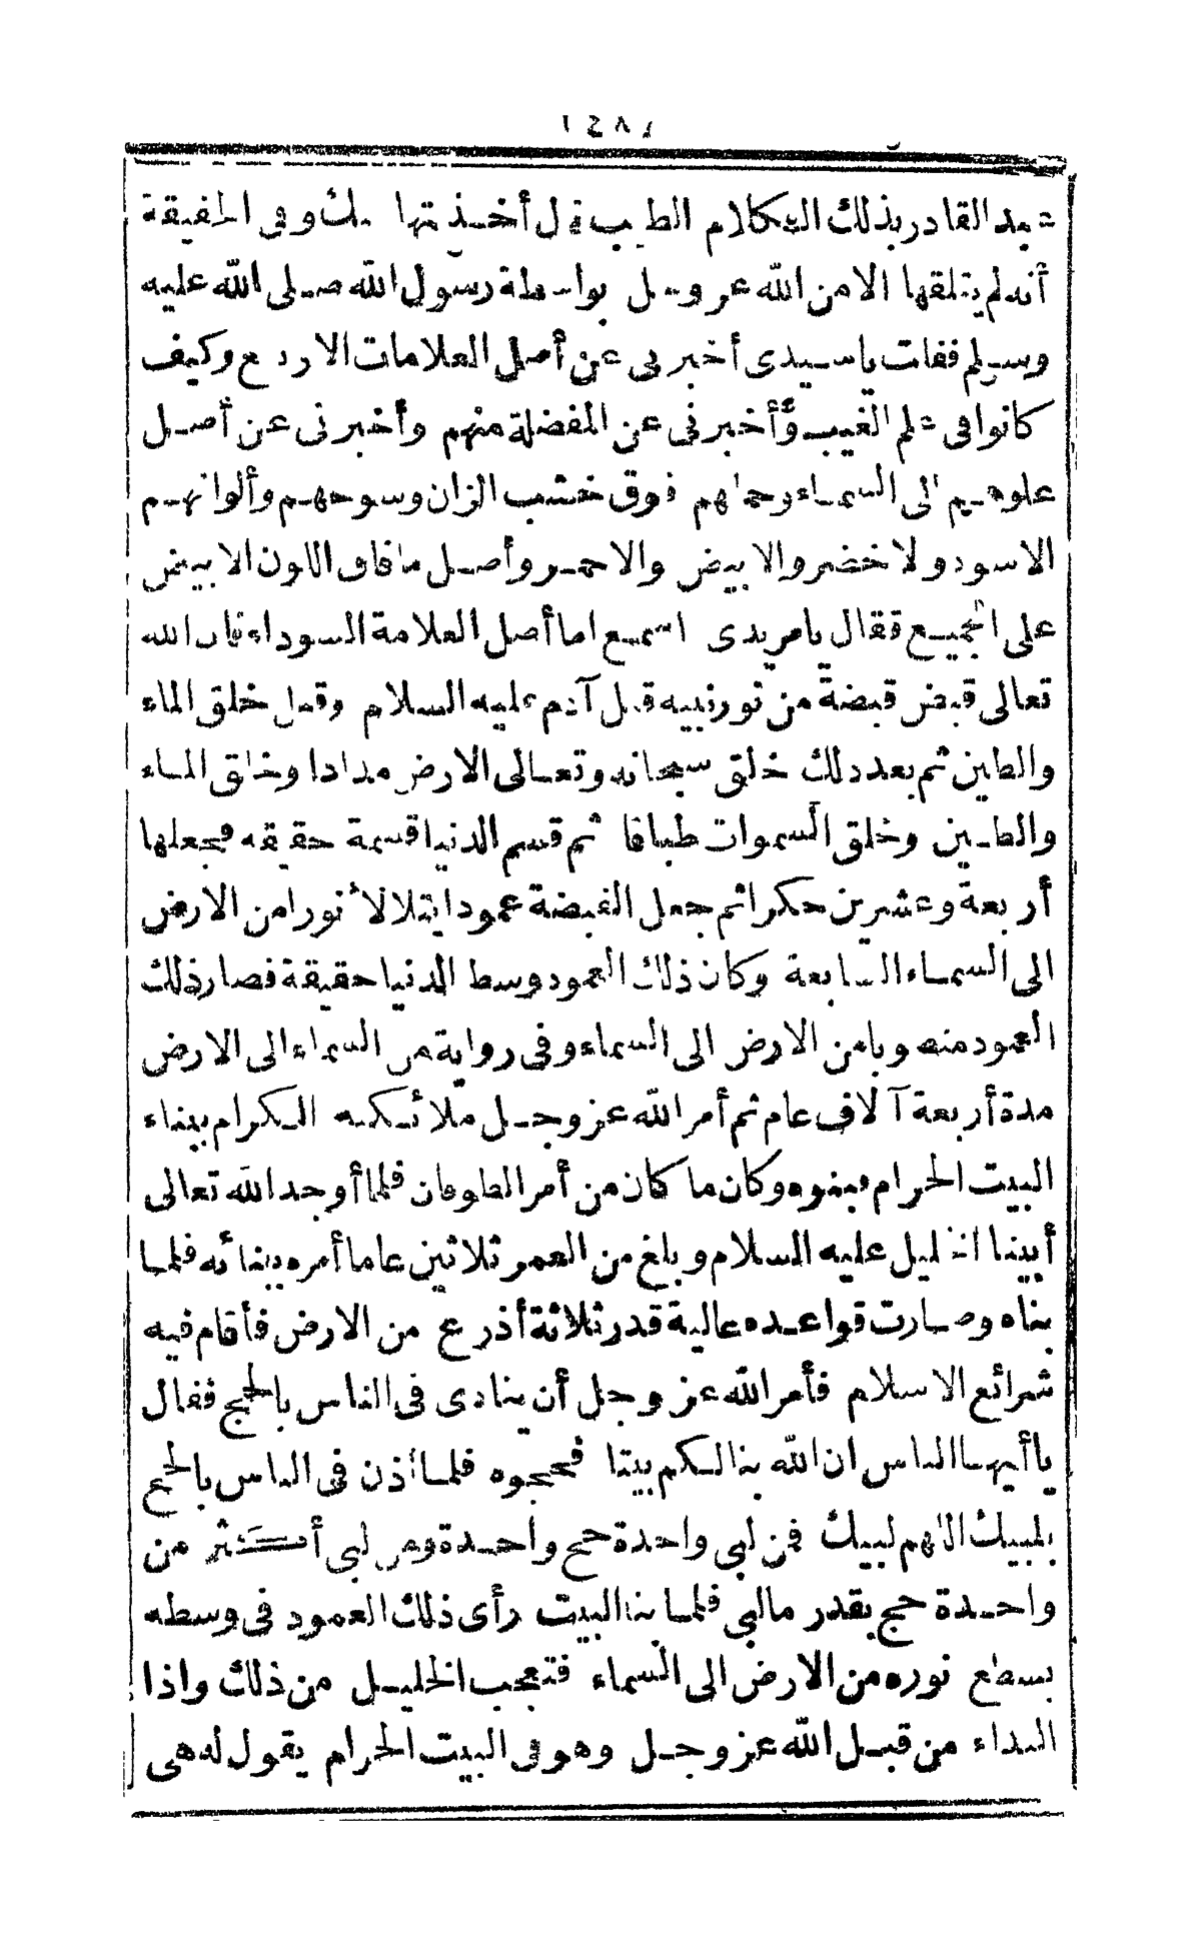 (١٤٨)
عبد القادر بذلك الكلام الطيب قال أخذتها منك وفى الحقيقة
أنه لم يتلقها الا من الله عز وجل بواسطة رسول الله صلى الله عليه
وسلم فقلت يا سيدى أخبرنى عن أصل العلامات الاربع وكيف
كانوا فى علم الغيب وأخبرنى عن المفضلة منهم وأخبرنى عن أصل
علوهم الى السماء وحملهم فوق خشب الزان وسوحهم وألوانهم
الاسود ولاخضر والابيض والاحمر وأصل ما فاق اللون الابيض
على الجميع فقال يا مريدى اسمع اما أصل العلامة السوداء فان الله
تعالى قبض قبضة من نور نبيه قبل آدم عليه السلام وقبل خلق الماء
والطين ثم بعد ذلك خلق سبحانه وتعالى الارض مدادا وخلق الماء
والطين وخلق السموات طباقا ثم قسم الدنيا قسمة حقيقه فجعلها
أربعة وعشرين حكرا ثم جعل القبضة عمودا يتلألأ نورا من الارض
الى السماء السابعة وكان ذلك العمود وسط الدنيا حقيقة فصار ذلك
العمود منصوبا من الارض الى السماء وفى رواية من السماء الى الارض
مدة أربعة آلاف عام ثم أمر الله عز وجل ملائكته الكرام ببناء
البيت الحرام فبنوه وكان ما كان من أمر الطوفان فلما أوجد الله تعالى
أبينا الخليل عليه السلام وبلغ من العمر ثلاثين عاما أمره ببنائه فلما
بناه وصارت قواعده عالية قدر ثلاثة أذرع من الارض فأقام فيه
شرائع الاسلام فأمر الله عز وجل أن ينادى فى الناس بالحج فقال
يا أيها الناس ان الله بنا لكم بيتا فحجوه فلما أذن فى الناس بالحج
بلبيك اللهم لبيك فمن لبى واحدة حج واحدة ومن لبى أكثر من
واحدة حج بقدر مالبى فلما بنا البيت رأى ذلك العمود فى وسطه
يسطع نوره من الارض الى السماء فتعجب الخليل من ذلك واذا
النداء من قبل الله عز وجل وهو فى البيت الحرام يقول له هى